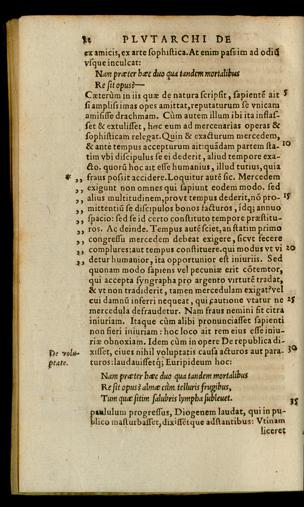 82 PLVTARCHI DE
ex amicis, ex arte sophistica. At enim passim ad odiū
vsque inculcat:
Nam præter hæc duo qua tandem mortalibus
Re sit opus?—
Cæterùm in iis quæ de natura scripsit, sapientē ait 5
si amplissimas opes amittat, reputaturum se vnicam
amisisse drachmam. Cùm autem illum ibi ita inflas-
set & extulisset, hoc eum ad mercenarias operas &
sophisticam relegat. Quin & exacturum mercedem,
& antè tempus accepturum ait: quādam partem sta- 10
tim vbi discipulus se ei dederit, aliud tempore exa-
cto. quorū hoc ait esse humanius, illud tutius, quia
* ,, fraus possit accidere. Loquitur autē sic. Mercedem
,, exigunt non omnes qui sapiunt eodem modo. sed
,, alius multitudinem, prout tempus dederit, nō pro- 15
,, mittentiū se discipulos bonos facturos, idq; annuo
,, spacio: sed se id certo constituto tempore præstitu-
,, ros. Ac deinde. Tempus autē sciet, an statim primo
,, congressu mercedem debeat exigere, sicvt fecere
,, complures: aut tempus constituere. qui modus vt vi 20
,, detur humanior, ita opportunior est iniuriis. Sed
quonam modo sapiens vel pecuniæ erit cōtemtor,
qui accepta syngrapha pro argento virtutē tradat,
& vt non tradiderit, tamen mercedulam exigat? vel
cui damnū inferri nequeat, qui cautione vtatur ne 25
mercedula defraudetur. Nam fraus nemini fit citra
iniuriam. Itaque cùm alibi pronunciasset sapienti
non fieri iniuriam: hoc loco ait rem eius esse iniu-
riæ obnoxiam. Idem cùm in opere De republica di-
De volu- xisset, ciues nihil voluptatis causa acturos aut para- 30
ptate. turos: laudauissetq; Euripideum hoc:
Nam præter hæc duo qua tandem mortalibus
Re sit opus? almæ cùm telluris frugibus,
Tum quæ sitim salubris lympha subleuet. 35
paululum progressus, Diogenem laudat, qui in pu-
blico masturbasset, dixissetque adstantibus: Vtinam
liceret